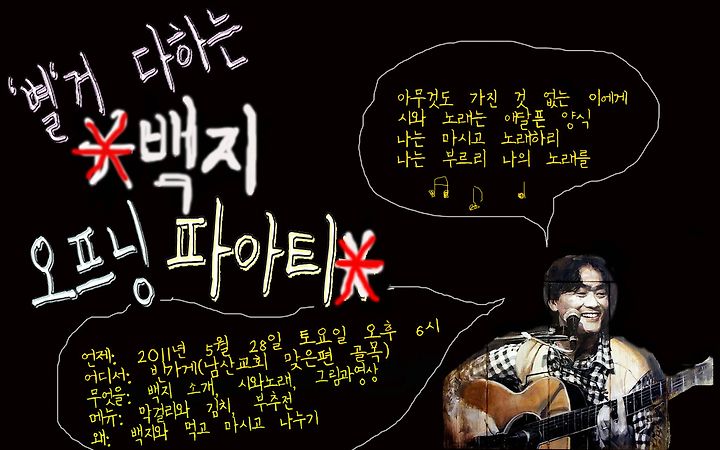 '별'거 다하는
*백지
오프닝 파아티*
아무것도 가진 것 없는 이에게
시와 노래는 애달픈 양식
나는 마시고 노래하리
나는 부르리 나의 노래를
언제: 2011년 5월 28일 토요일 오후 6시
어디서: 빈가게(남산교회 맞은편 골목)
무엇을: 백지 소개, 시와노래, 그림과영상
메뉴: 막걸리와 김치, 부추전
왜: 백지와 먹고 마시고 나누기